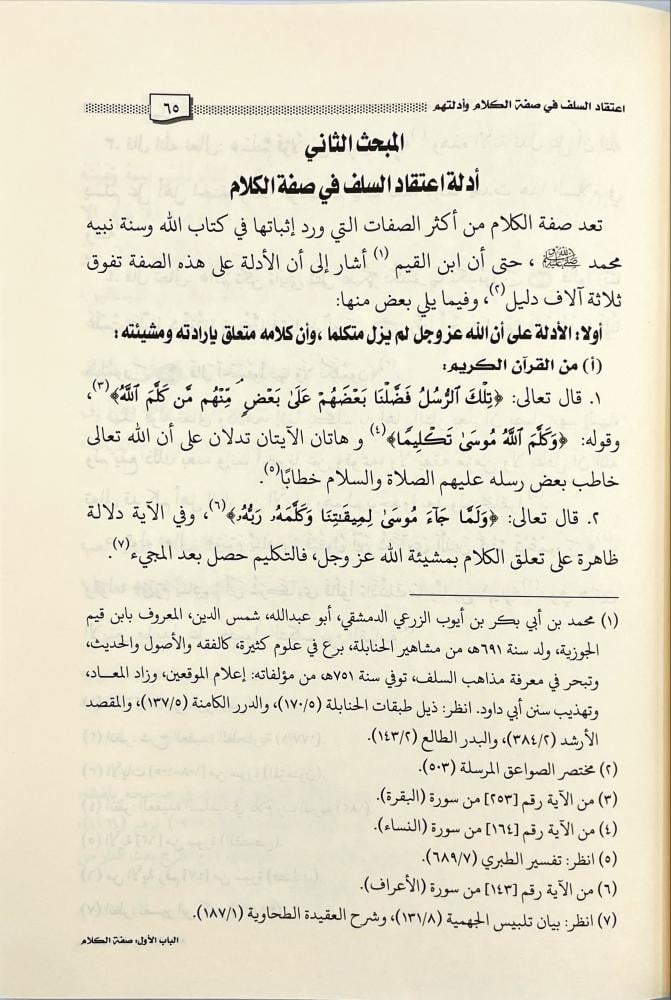 اعتقاد السلف في صفة الكلام وأدلتهم
٦٥
المبحث الثاني
أدلة اعتقاد السلف في صفة الكلام
تعد صفة الكلام من أكثر الصفات التي ورد إثباتها في كتاب الله وسنة نبيه
محمد ﷺ ، حتى أن ابن القيم (١) أشار إلى أن الأدلة على هذه الصفة تفوق
ثلاثة آلاف دليل(٢)، وفيما يلي بعض منها:
أولا: الأدلة على أن الله عز وجل لم يزل متكلما ، وأن كلامه متعلق بإرادته ومشيئته :
(أ) من القرآن الكريم:
١. قال تعالى: ﴿تِلْكَ ٱلرُّسُلُ فَضَّلْنَا بَعْضَهُمْ عَلَىٰ بَعْضٍ مِّنْهُم مَّن كَلَّمَ ٱللَّهُ﴾(٣)،
وقوله: ﴿وَكَلَّمَ ٱللَّهُ مُوسَىٰ تَكْلِيمًا﴾(٤) و هاتان الآيتان تدلان على أن الله تعالى
خاطب بعض رسله عليهم الصلاة والسلام خطابًا(٥).
٢. قال تعالى: ﴿وَلَمَّا جَآءَ مُوسَىٰ لِمِيقَـٰتِنَا وَكَلَّمَهُۥ رَبُّهُۥ﴾(٦)، وفي الآية دلالة
ظاهرة على تعلق الكلام بمشيئة الله عز وجل، فالتكليم حصل بعد المجيء(٧).
(١) محمد بن أبي بكر بن أيوب الزرعي الدمشقي، أبو عبدالله، شمس الدين، المعروف بابن قيم
الجوزية، ولد سنة ٦٩١هـ، من مشاهير الحنابلة، برع في علوم كثيرة، كالفقه والأصول والحديث،
وتبحر في معرفة مذاهب السلف، توفي سنة ٧٥١هـ، من مؤلفاته: إعلام الموقعين، وزاد المعاد،
وتهذيب سنن أبي داود. انظر: ذيل طبقات الحنابلة (١٧٠/٥)، والدرر الكامنة (١٣٧/٥)، والمقصد
الأرشد (٣٨٤/٢)، والبدر الطالع (١٤٣/٢).
(٢) مختصر الصواعق المرسلة (٥٠٣).
(٣) من الآية رقم [٢٥٣] من سورة (البقرة).
(٤) من الآية رقم [١٦٤] من سورة (النساء).
(٥) انظر: تفسير الطبري (٦٨٩/٧).
(٦) من الآية رقم [١٤٣] من سورة (الأعراف).
(٧) انظر: بيان تلبيس الجهمية (١٣١/٨)، وشرح العقيدة الطحاوية (١٨٧/١).
الباب الأول: صفة الكلام